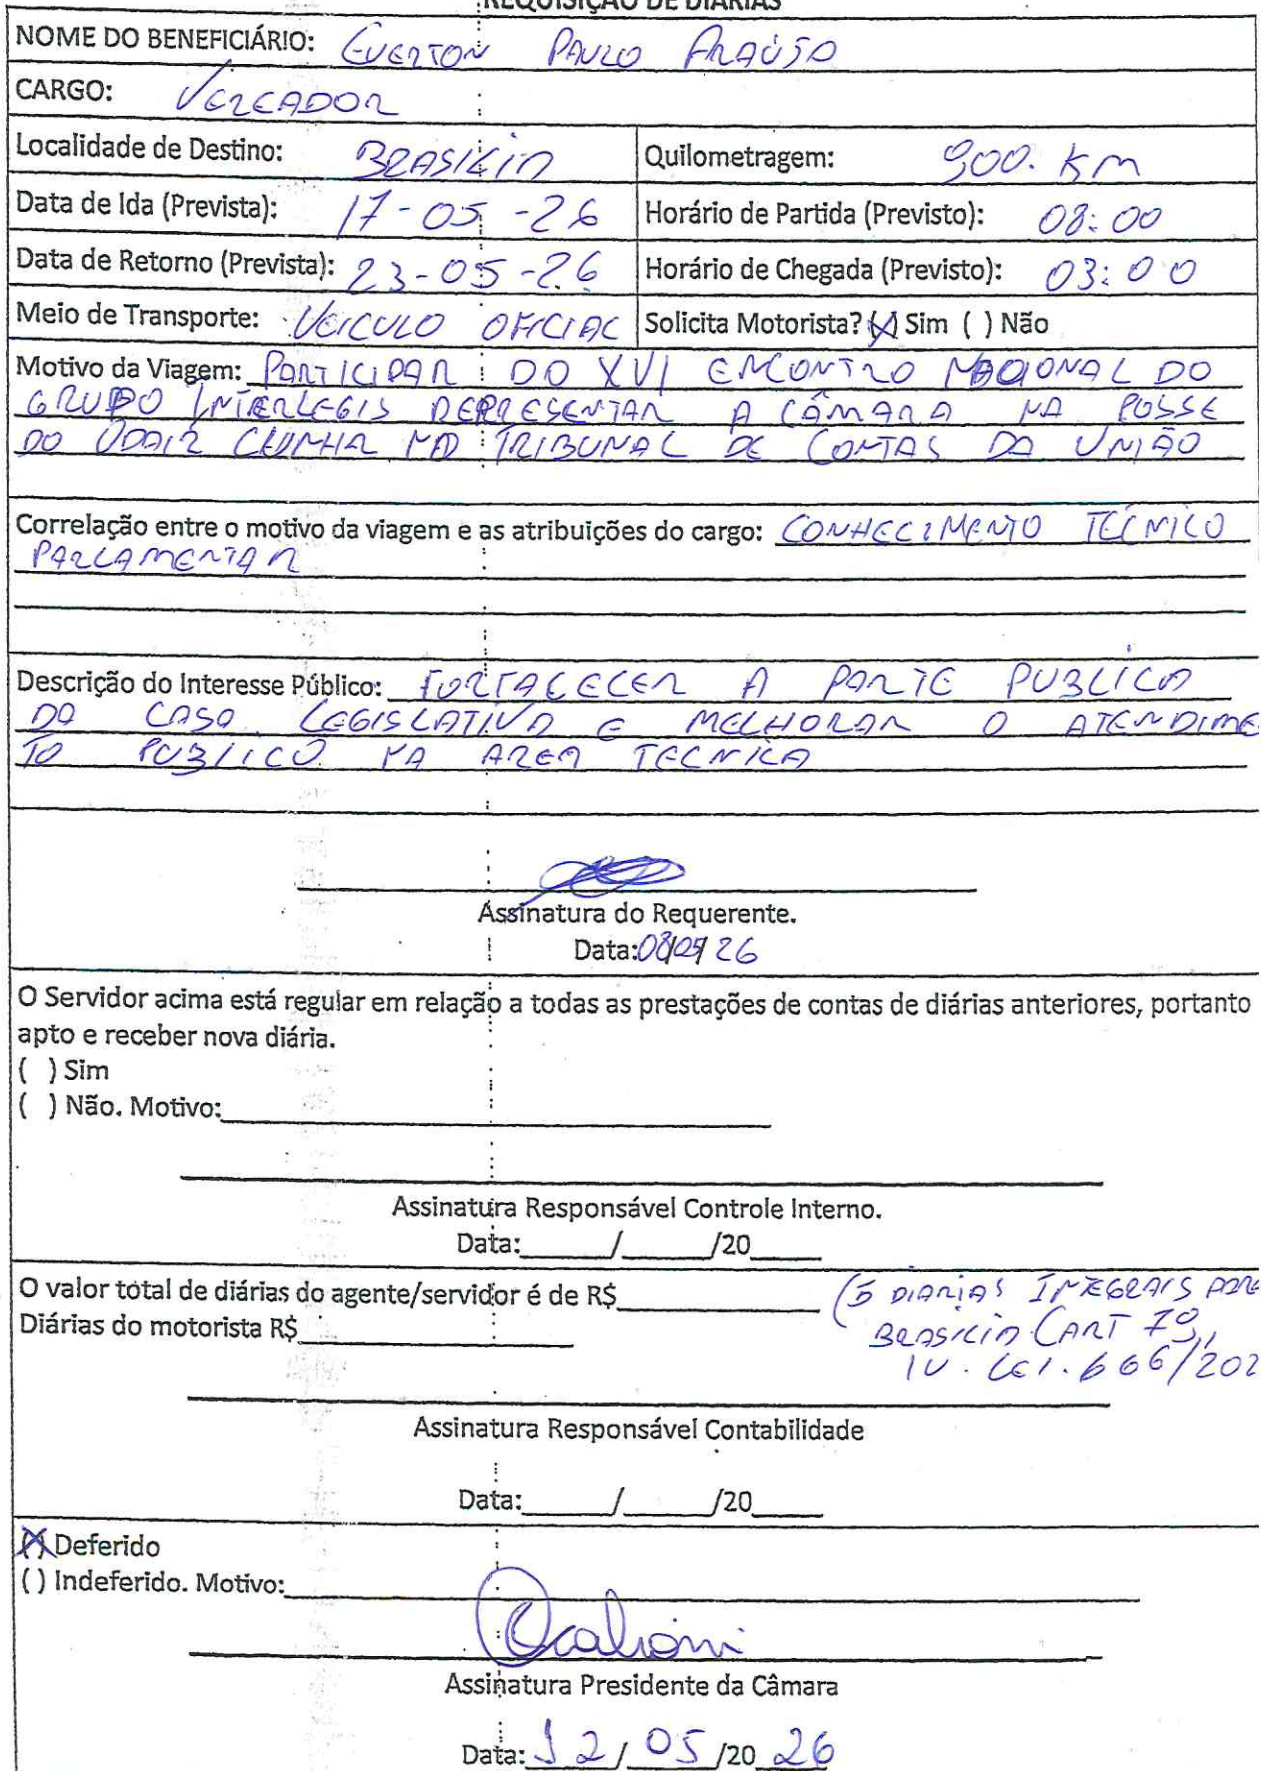 REQUISIÇÃO DE DIÁRIAS
NOME DO BENEFICIÁRIO: EVERTON PAULO ARAÚJO
CARGO: VEREADOR
Localidade de Destino: BRASILIA Quilometragem: 900. KM
Data de Ida (Prevista): 17-05-26 Horário de Partida (Previsto): 08:00
Data de Retorno (Prevista): 23-05-26 Horário de Chegada (Previsto): 03:00
Meio de Transporte: VEICULO OFICIAL Solicita Motorista? (X) Sim ( ) Não
Motivo da Viagem: PARTICIPAR DO XVI ENCONTRO NACIONAL DO
GRUPO INTERLEGIS REPRESENTAR A CÂMARA NA POSSE
DO ODAIR CUNHA NO TRIBUNAL DE CONTAS DA UNIÃO
Correlação entre o motivo da viagem e as atribuições do cargo: CONHECIMENTO TECNICO
PARLAMENTAR
Descrição do Interesse Público: FORTALECER A PARTE PUBLICA
DA CASA LEGISLATIVA E MELHORAR O ATENDIME
TO PUBLICO NA AREA TECNICA
Assinatura do Requerente.
Data: 08/05/26
O Servidor acima está regular em relação a todas as prestações de contas de diárias anteriores, portanto
apto e receber nova diária.
( ) Sim
( ) Não. Motivo:
Assinatura Responsável Controle Interno.
Data: / /20
O valor total de diárias do agente/servidor é de R$ (5 DIARIAS INTEGRAIS PARA
Diárias do motorista R$ BRASILIA (ART 7º,
IV. LEI. 666/202
Assinatura Responsável Contabilidade
Data: / /20
(X) Deferido
( ) Indeferido. Motivo:
Assinatura Presidente da Câmara
Data: 12/05/2026